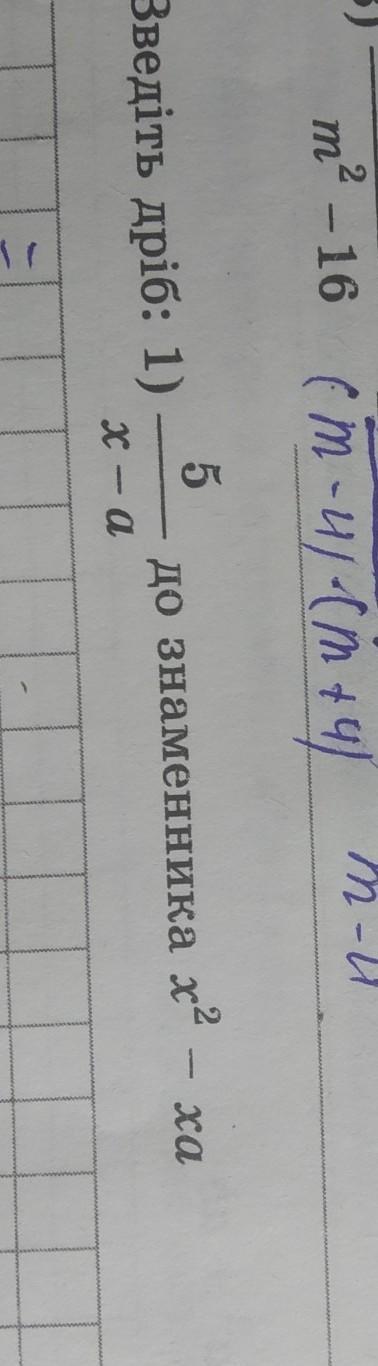 m² – 16 (m - 4)·(m + 4) m - 4
Зведіть дріб: 1) 5/(x – a) до знаменника x² – xa
=